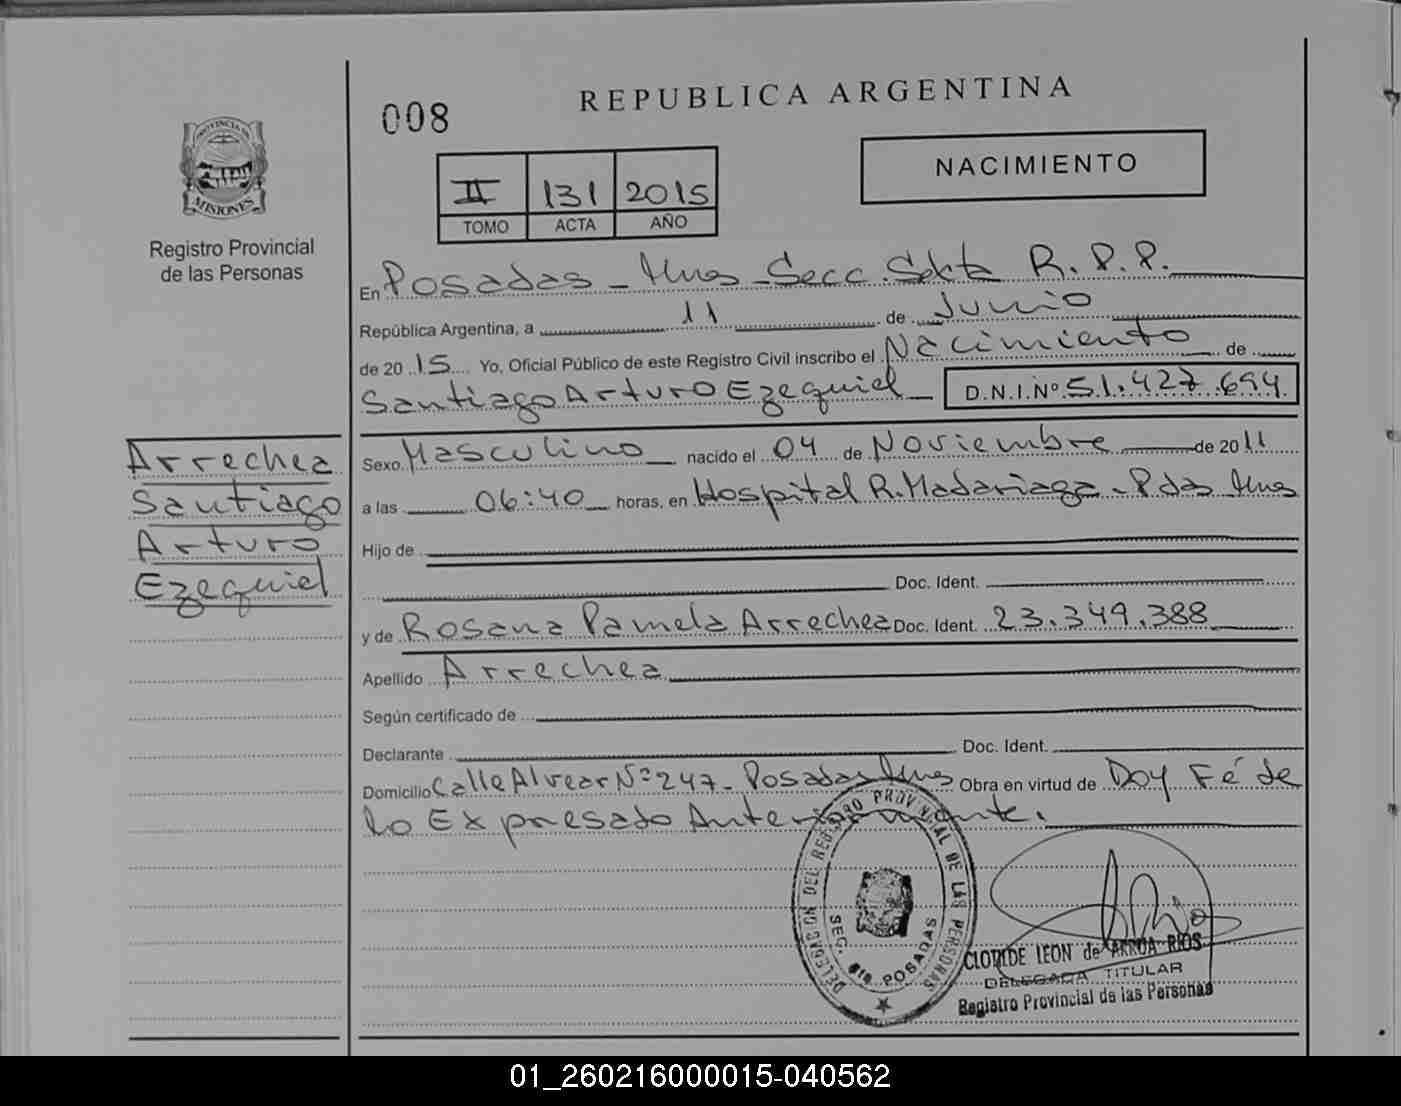 008
REPUBLICA ARGENTINA
PROVINCIA DE
MISIONES
Registro Provincial
de las Personas
II 131 2015
TOMO ACTA AÑO
NACIMIENTO
En Posadas - Mnes - Secc. Sexta R.P.P.
República Argentina, a 11 de Junio
de 20 15 Yo, Oficial Público de este Registro Civil inscribo el Nacimiento de
Santiago Arturo Ezequiel D.N.I.Nº 51.427.694
Arrechea
Santiago
Arturo
Ezequiel
Sexo Masculino nacido el 04 de Noviembre de 2011
a las 06:40 horas, en Hospital R. Madariaga - Pdas Mnes
Hijo de
Doc. Ident.
y de Rosana Pamela Arrechea Doc. Ident. 23.349.388
Apellido Arrechea
Según certificado de
Declarante Doc. Ident.
Domicilio Calle Alvear Nº 247 - Posadas Mnes Obra en virtud de Doy Fé de
lo Expresado Anteriormente.
DELEGACION DEL REGISTRO PROVINCIAL DE LAS PERSONAS
SEC. 6ta POSADAS
CLOTILDE LEON de ARRUA RIOS
DELEGADA TITULAR
Registro Provincial de las Personas
01_260216000015-040562